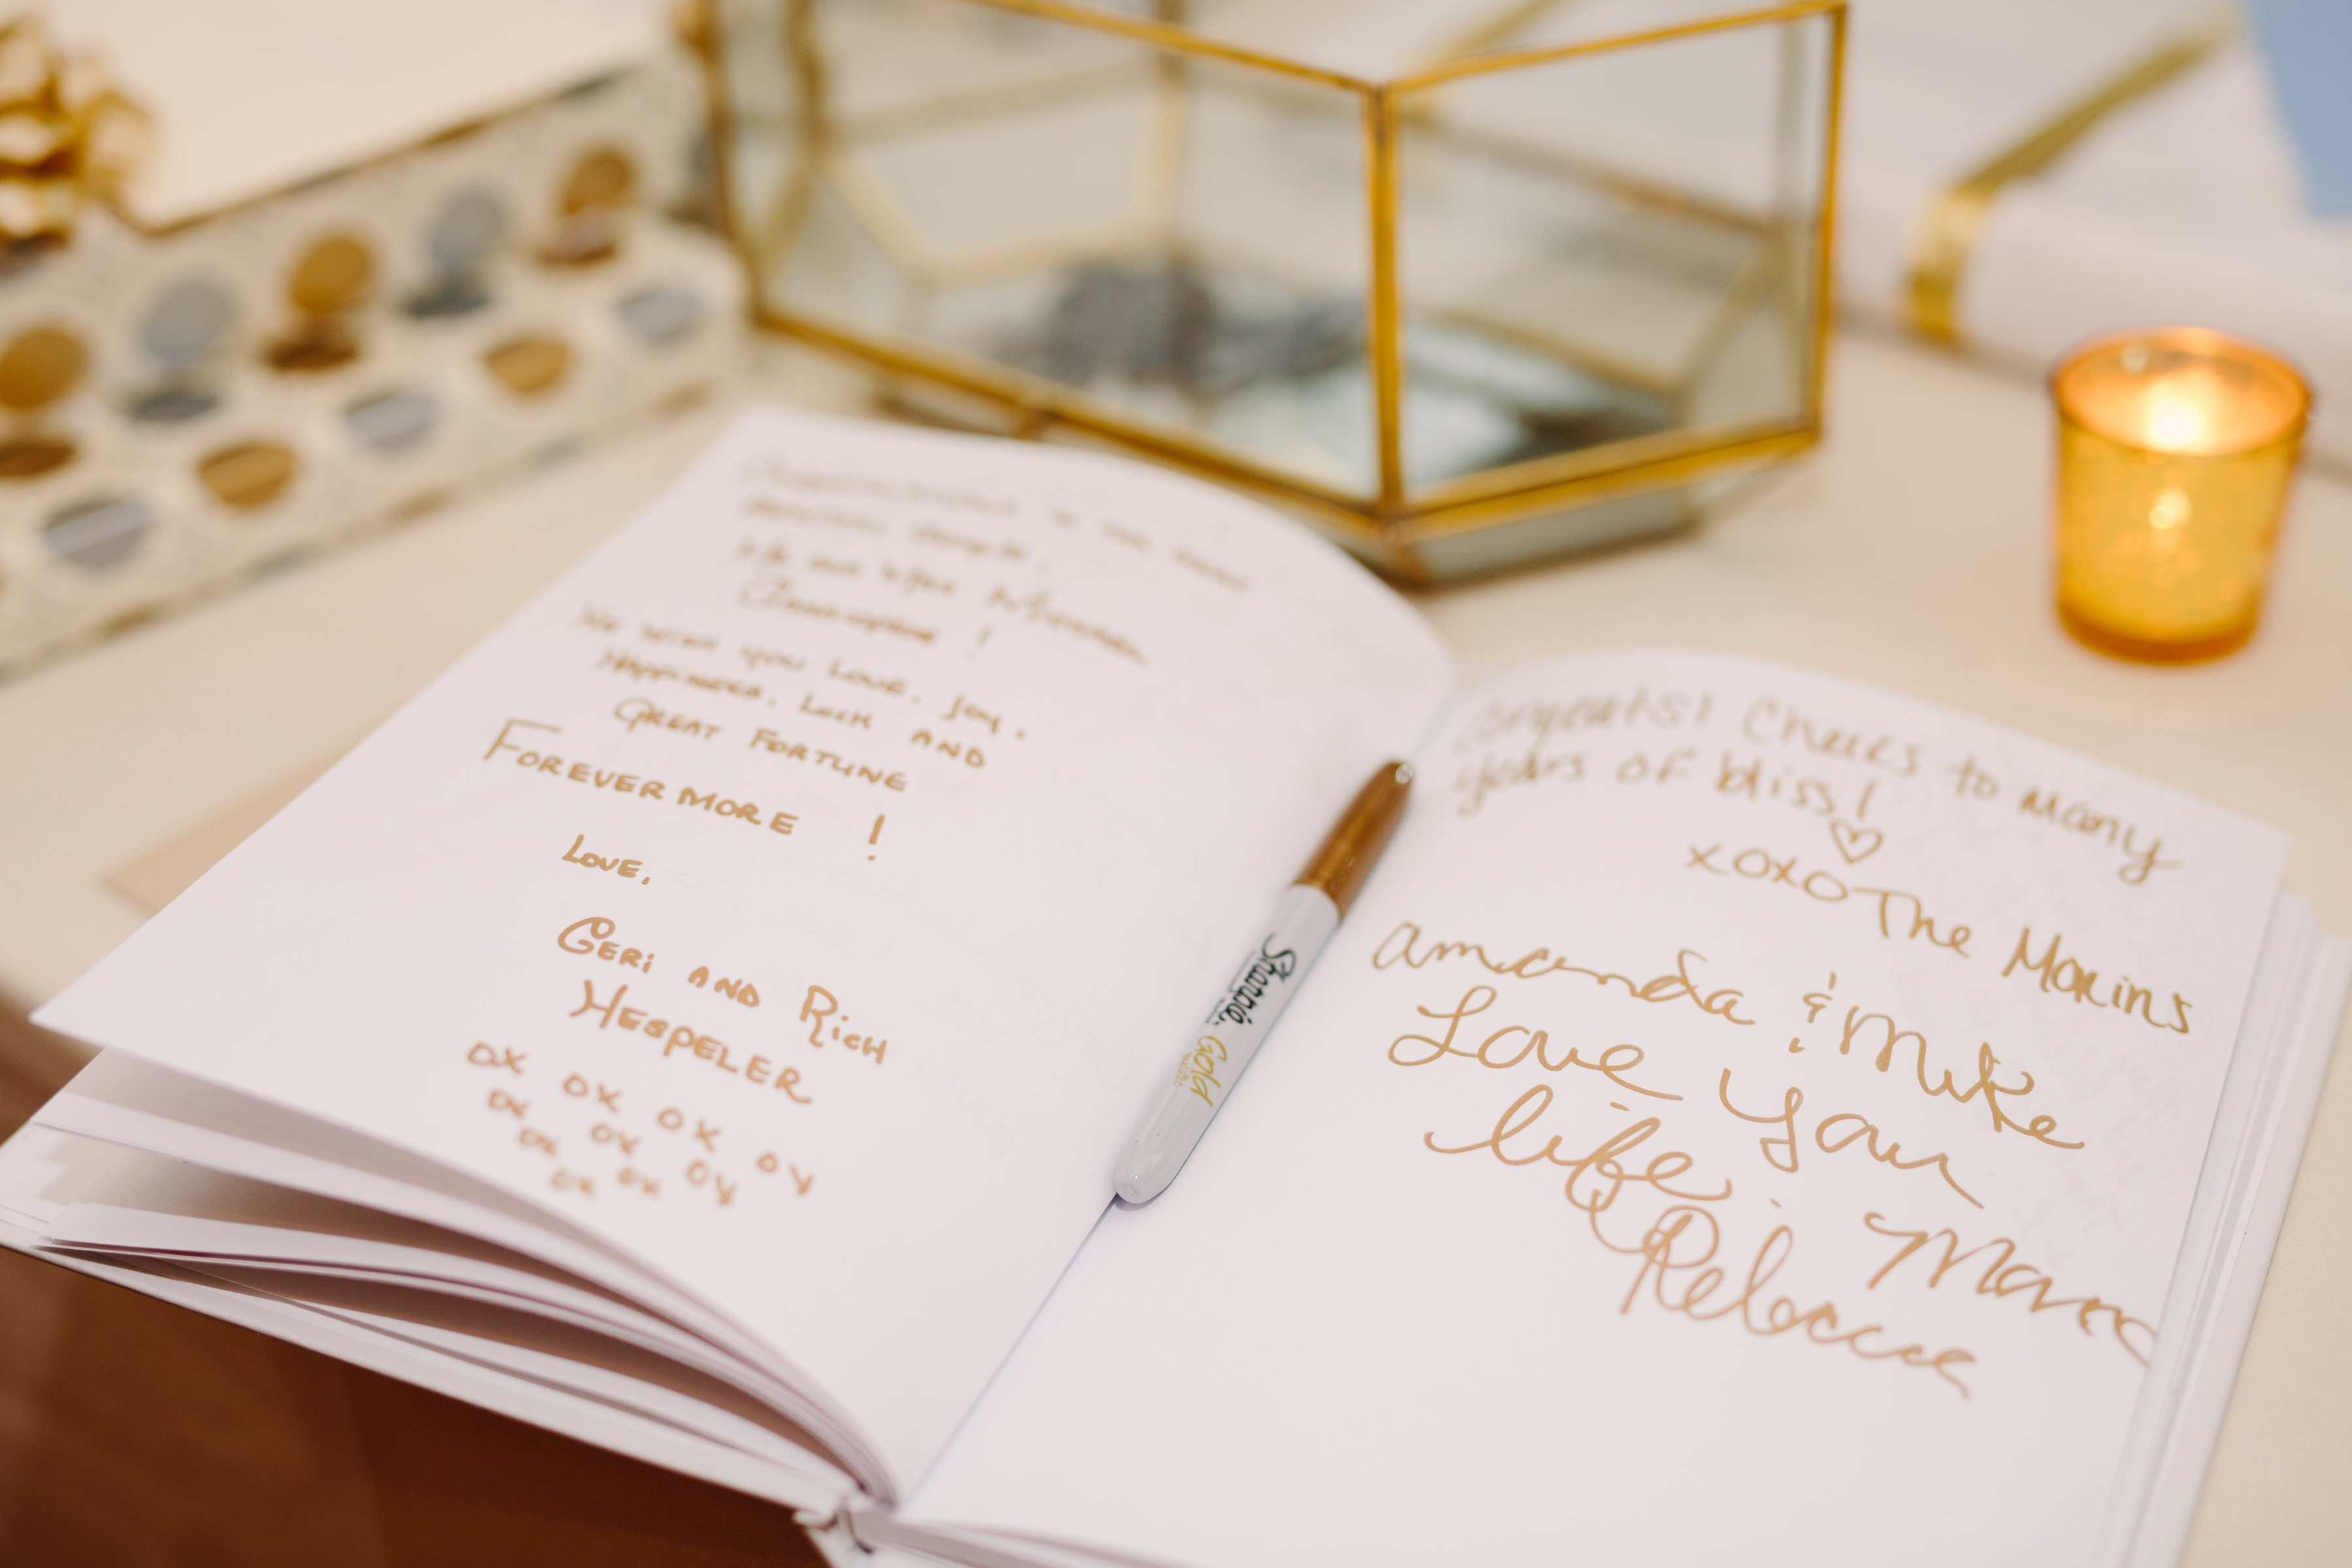 Congratulations to the most
Beautiful Couple,
We
!
We wish you Love, Joy,
Happiness, Luck AND
GREAT FORTUNE
FOREVERMORE !
LOVE,
GERI AND RICH
HESPELER
OX OX OX OX
OX OX OX
OX OX
OX
Sharpie
Gold
Congrats! Cheers to many
years of bliss!
xoxo The Morins
Amanda & Mike
Love you
life.
Rebecca